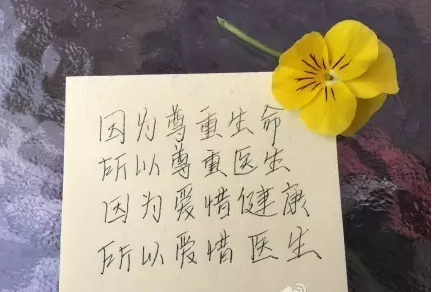 因为尊重生命
所以尊重医生
因为爱惜健康
所以爱惜医生